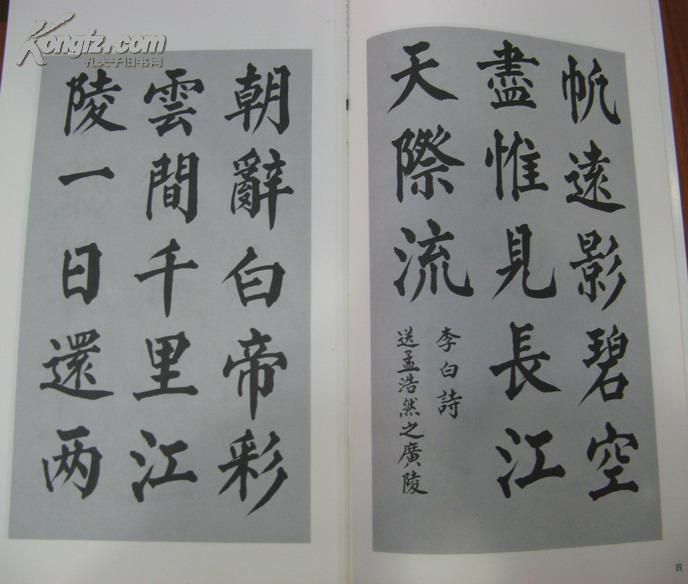 帆遠影碧空
盡惟見長江
天際流
李白詩
送孟浩然之廣陵
四
朝辭白帝彩
雲間千里江
陵一日還两
Kongfz.com
孔夫子旧书网